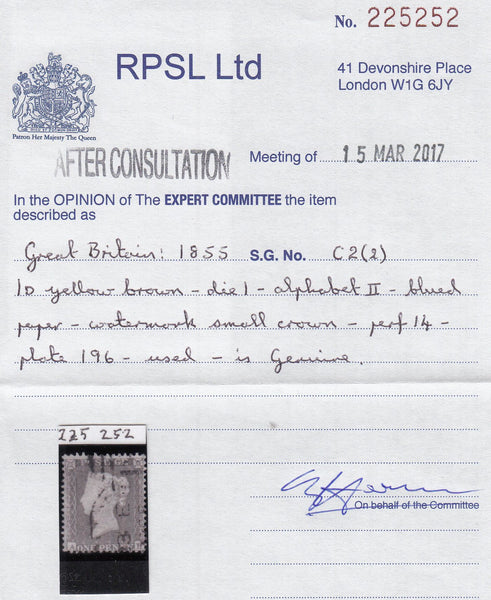 No. 225252
RPSL Ltd
41 Devonshire Place
London W1G 6JY
Patron Her Majesty The Queen
AFTER CONSULTATION
Meeting of 15 MAR 2017
In the OPINION of The EXPERT COMMITTEE the item
described as
Great Britain: 1855 S.G. No. C2(2)
1D yellow brown - die 1 - alphabet II - blued
paper - watermark small crown - perf 14 -
plate 196 - used - is Genuine.
225 252
ONE PEN
On behalf of the Committee